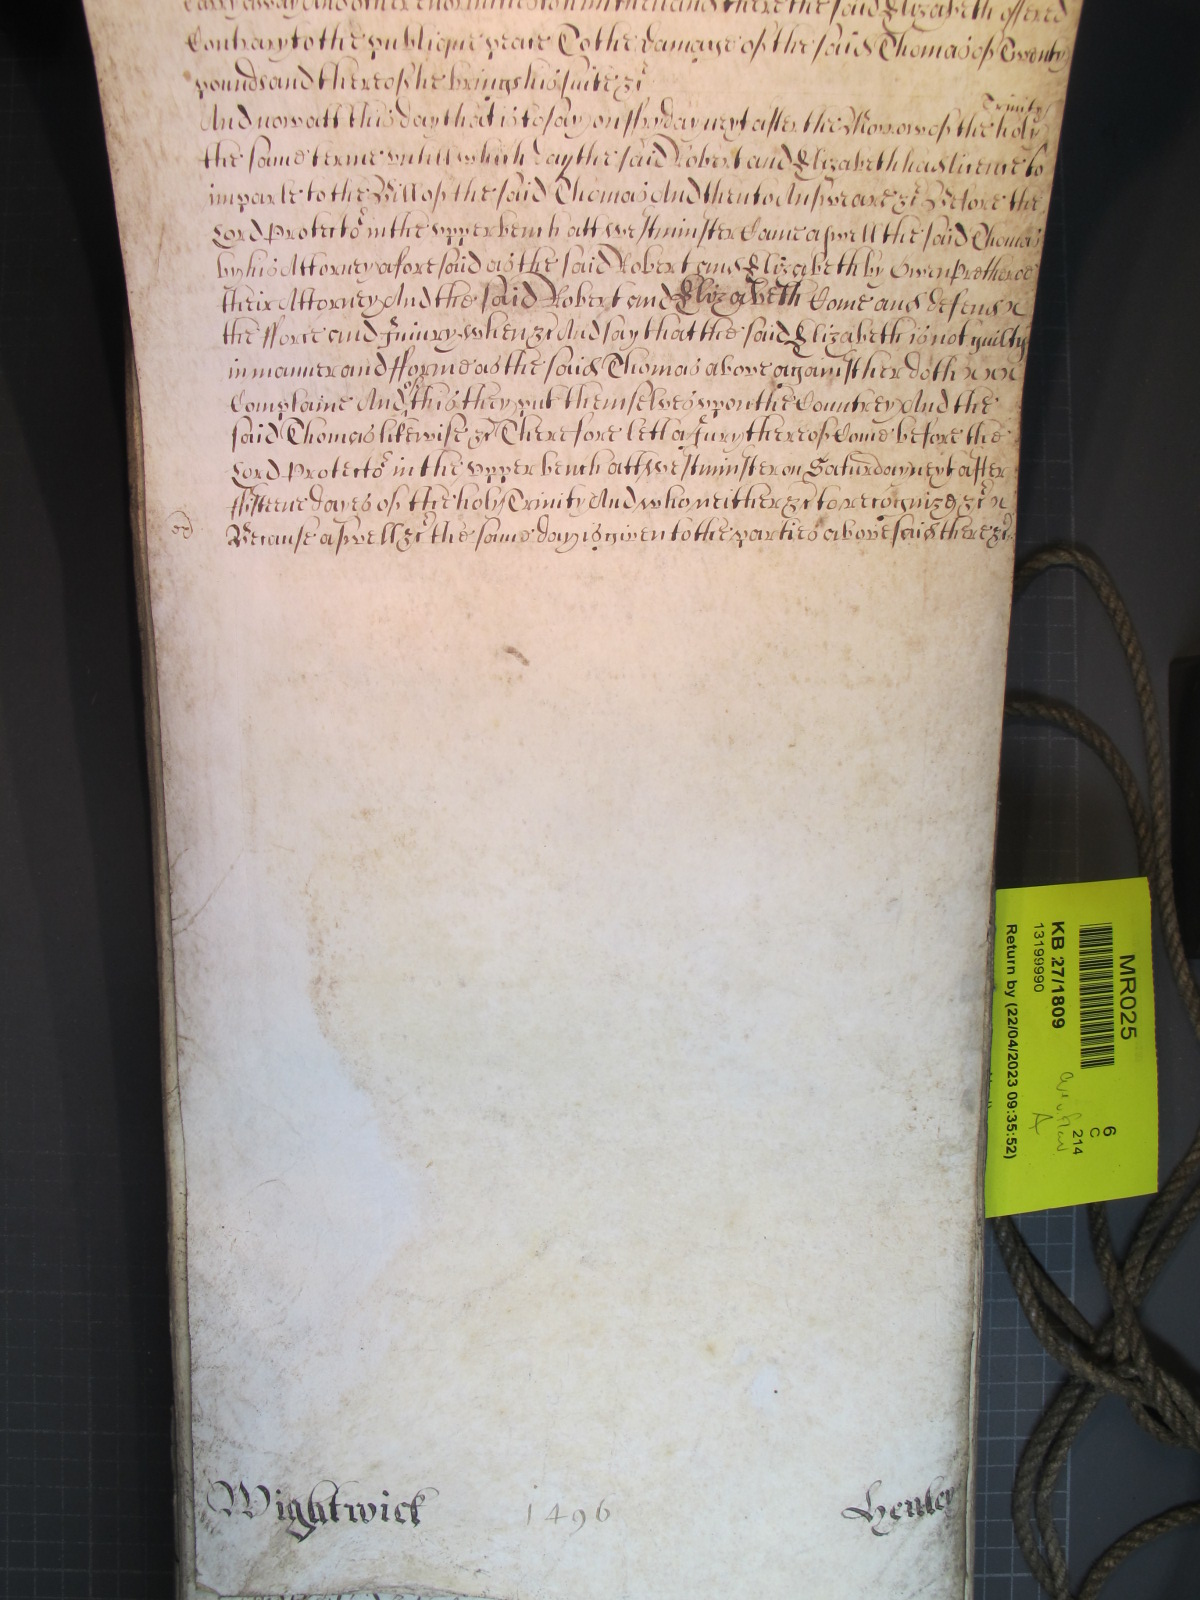 Carry away And other enormities on him then and there the said Elizabeth offered
Contrary to the publique peace To the damage of the said Thomas of Twenty
pounds and thereof he brings his suite &c
Trinity
And now att this day that is to say on ffryday next after the Morrow of the holy
the same terme untill which day the said Robert and Elizabeth had licence to
imparle to the Bill of the said Thomas And then to Answeare &c Before the
Lord Protector in the upper bench att Westminster Came aswell the said Thomas
by his Attorney aforesaid as the said Robert and Elizabeth by Owen Protheroe
their Attorney And the said Robert and Elizabeth Come and defend
the fforce and Injury when &c And say that the said Elizabeth is not guilty
in manner and fforme as the said Thomas above against her doth
of
Complaine And this they put themselves upon the Countrey And the
said Thomas likewise &c Therefore lett a Jury thereof Come before the
Lord Protector in the upper bench att Westminster on Saturday next after
ffifteene dayes of the holy Trinity And who neither &c to recognize &c
Because aswell &c the same day is given to the parties abovesaid there &c
Wightwick 1496 Henley
MR025
KB 27/1809
13199990
Return by (22/04/2023 09:35:52)
6
C
214
A